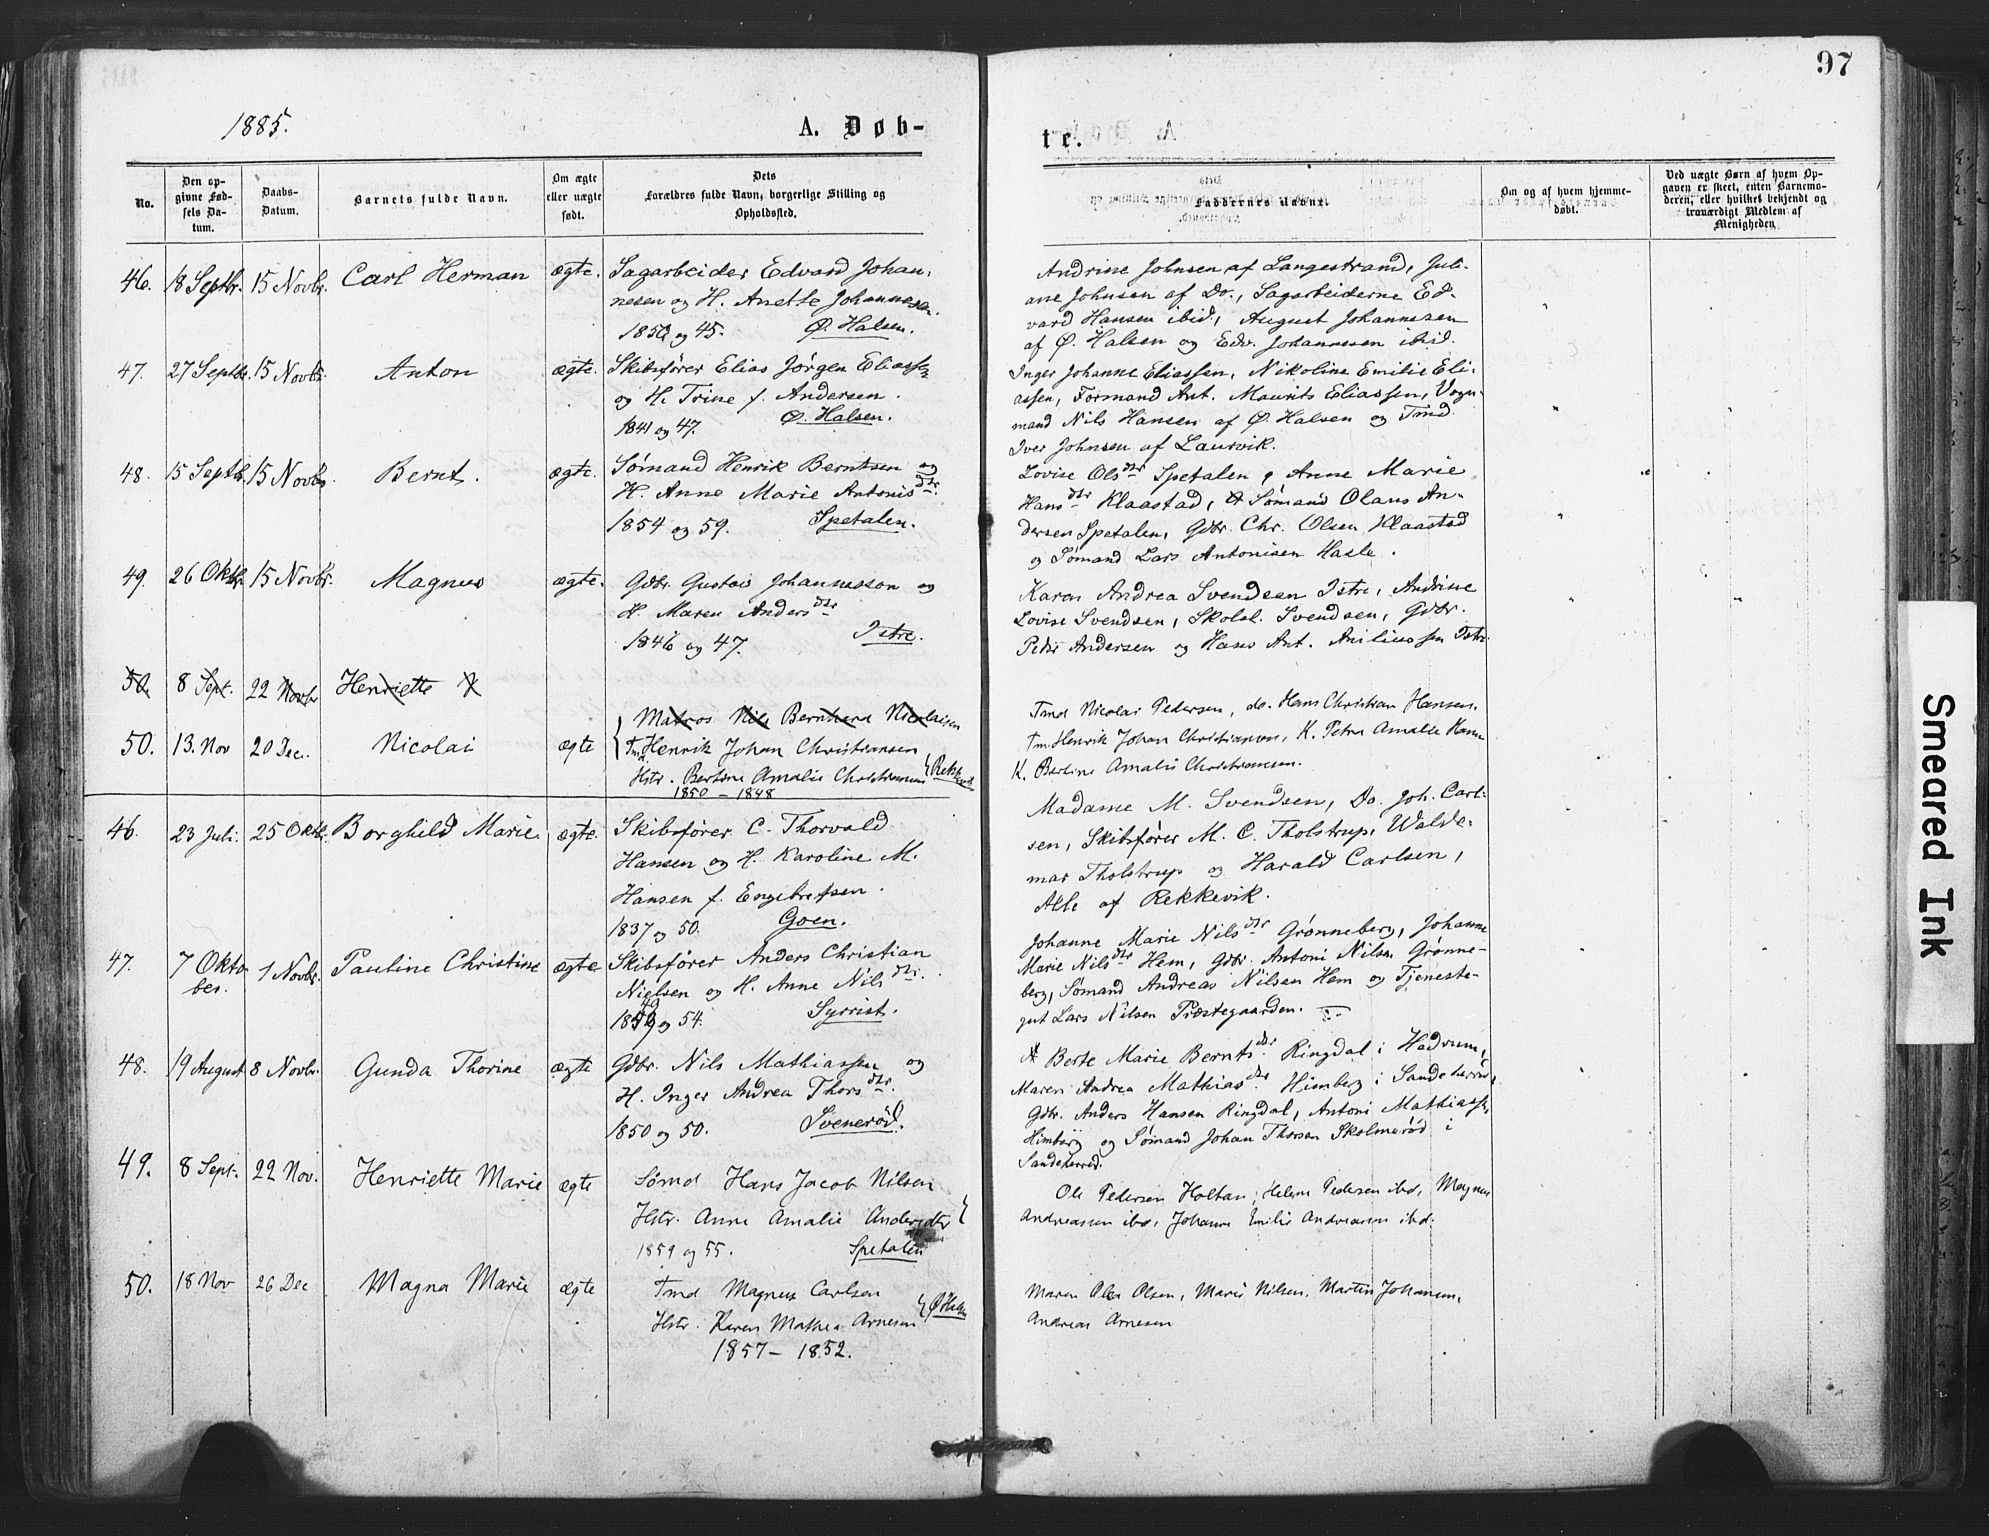 97
1885.
A. Døb-
te.
No.
Den op-
givne Fød-
sels Da-
tum.
Daabs-
Datum.
Barnets fulde Navn.
Om ægte
eller uægte
født.
Dets
Forældres fulde Navn, borgerlige Stilling og
Opholdssted.
Faddernes Navne.
Om og af hvem hjemme-
døbt.
Ved uægte Børn af hvem Op-
gaven er skeet, enten Barnemo-
deren, eller hvilket bekjendt og
troværdigt Medlem af
Menigheden.
46. 18 Septbr. 15 Novbr. Carl Herman ægte. Sagarbeider Edvard Johan-
nesen og H. Anette Johannesen.
1852 og 45. Ø. Halsen.
Andrine Johnsen af Langestrand, Juli-
ane Johnsen af Do., Sagarbeiderne Ed-
vard Hansen ibid, August Johannesen
af Ø. Halsen og Edv. Johannesen ibid.
47. 27 Septbr. 15 Novbr. Anton ægte. Skibsfører Elias Jørgen Eliassen
og H. Trine f. Andersen.
1841 og 47. Ø. Halsen.
Inger Johanne Eliassen, Nikoline Emilie Eli-
assen, Formand Ant. Maurits Eliassen, Vogn-
mand Nils Hansen af Ø. Halsen og Tmd.
Iver Johnsen af Laurvik.
48. 15 Septbr. 15 Novbr. Bernt. ægte. Sømand Henrik Berntsen og
H. Anne Marie Antonisdtr.
1854 og 59. Spetalen.
Lovise Olsdtr Spetalen, Anne Marie
Hansdtr Klaastad, Sømand Olaus An-
dersen Spetalen, Gdbr. Chr. Olsen Klaastad
og Sømand Lars Antonisen Hasle.
49. 26 Oktbr. 15 Novbr. Magnus ægte. Gdbr. Gustav Johannesson og
H. Maren Andersdtr
1846 og 47. Istre.
Karen Andrea Svendsen Istre, Andrine
Lovise Svendsen, Skolel. Svendsen, Gdbr.
Peder Andersen og Hans Ant. Aniliussen Istre.
50. 8 Sept. 22 Novbr Henriette
Matros Nils Bernhard Nicolaisen
50. 13. Nov 20 Dec. Nicolai ægte Tmd. Henrik Johan Christiansen
Hstr. Bertine Amalie Christiansen Rekkevik
1850 – 1848
Tmd Nicolai Pedersen, do. Hans Christian Hansen.
Tm. Henrik Johan Christiansen, K. Petra Amalie Hansen
K. Bertine Amalie Christiansen.
46. 23 Juli. 25 Oktbr. Borghild Marie. ægte. Skibsfører C. Thorvald
Hansen og H. Karoline M.
Hansen f. Engebretsen.
1837 og 50. Goen.
Madame M. Svendsen, Do. Joh. Carl-
sen, Skibsfører M. C. Tholstrup, Walde-
mar Tholstrup og Harald Carlsen,
Alle af Rekkevik.
47. 7 Okto-
ber. 1 Novbr. Pauline Christine ægte. Skibsfører Anders Christian
Nielsen og H. Anne Nilsdtr.
1849 og 54. Syrrist.
Johanne Marie Nilsdtr Grønneberg, Johanne
Marie Nilsdtr Hem, Gdbr. Antoni Nilsen Grønne-
berg, Sømand Andreas Nilsen Hem og Tjeneste-
gut Lars Nilsen Præstegaarden.
48. 19 August 8 Novbr. Gunda Thorine ægte Gdbr. Nils Mathiassen og
H. Inger Andrea Thorsdtr.
1850 og 50. Svenerød.
Berte Marie Berntsdtr. Ringdal i Hedrum,
Maren Andrea Mathiasdtr. Himberg i Sandeherred,
Gdbr. Anders Hansen Ringdal, Antoni Mathiassen
Himberg og Sømand Johan Thorsen Skolmerød i
Sandeherred.
49. 8 Sept. 22 Nov. Henriette Marie ægte Sømd Hans Jacob Nilsen
Hstr. Anne Amalie Andersdtr
1859 og 55. Spetalen
Ole Pedersen Holtan, Helene Pedersen ibd, Magnus
Andreassen ibd, Johanne Emilie Andreassen ibd.
50. 18 Nov 26 Dec Magna Marie ægte Tmd Magnus Carlsen
Hstr. Karen Mathea Arnesen Ø Halsen
1857 – 1852.
Maren Olea Olsen, Marie Nilsen, Martin Johansen,
Andreas Arnesen
Smeared Ink